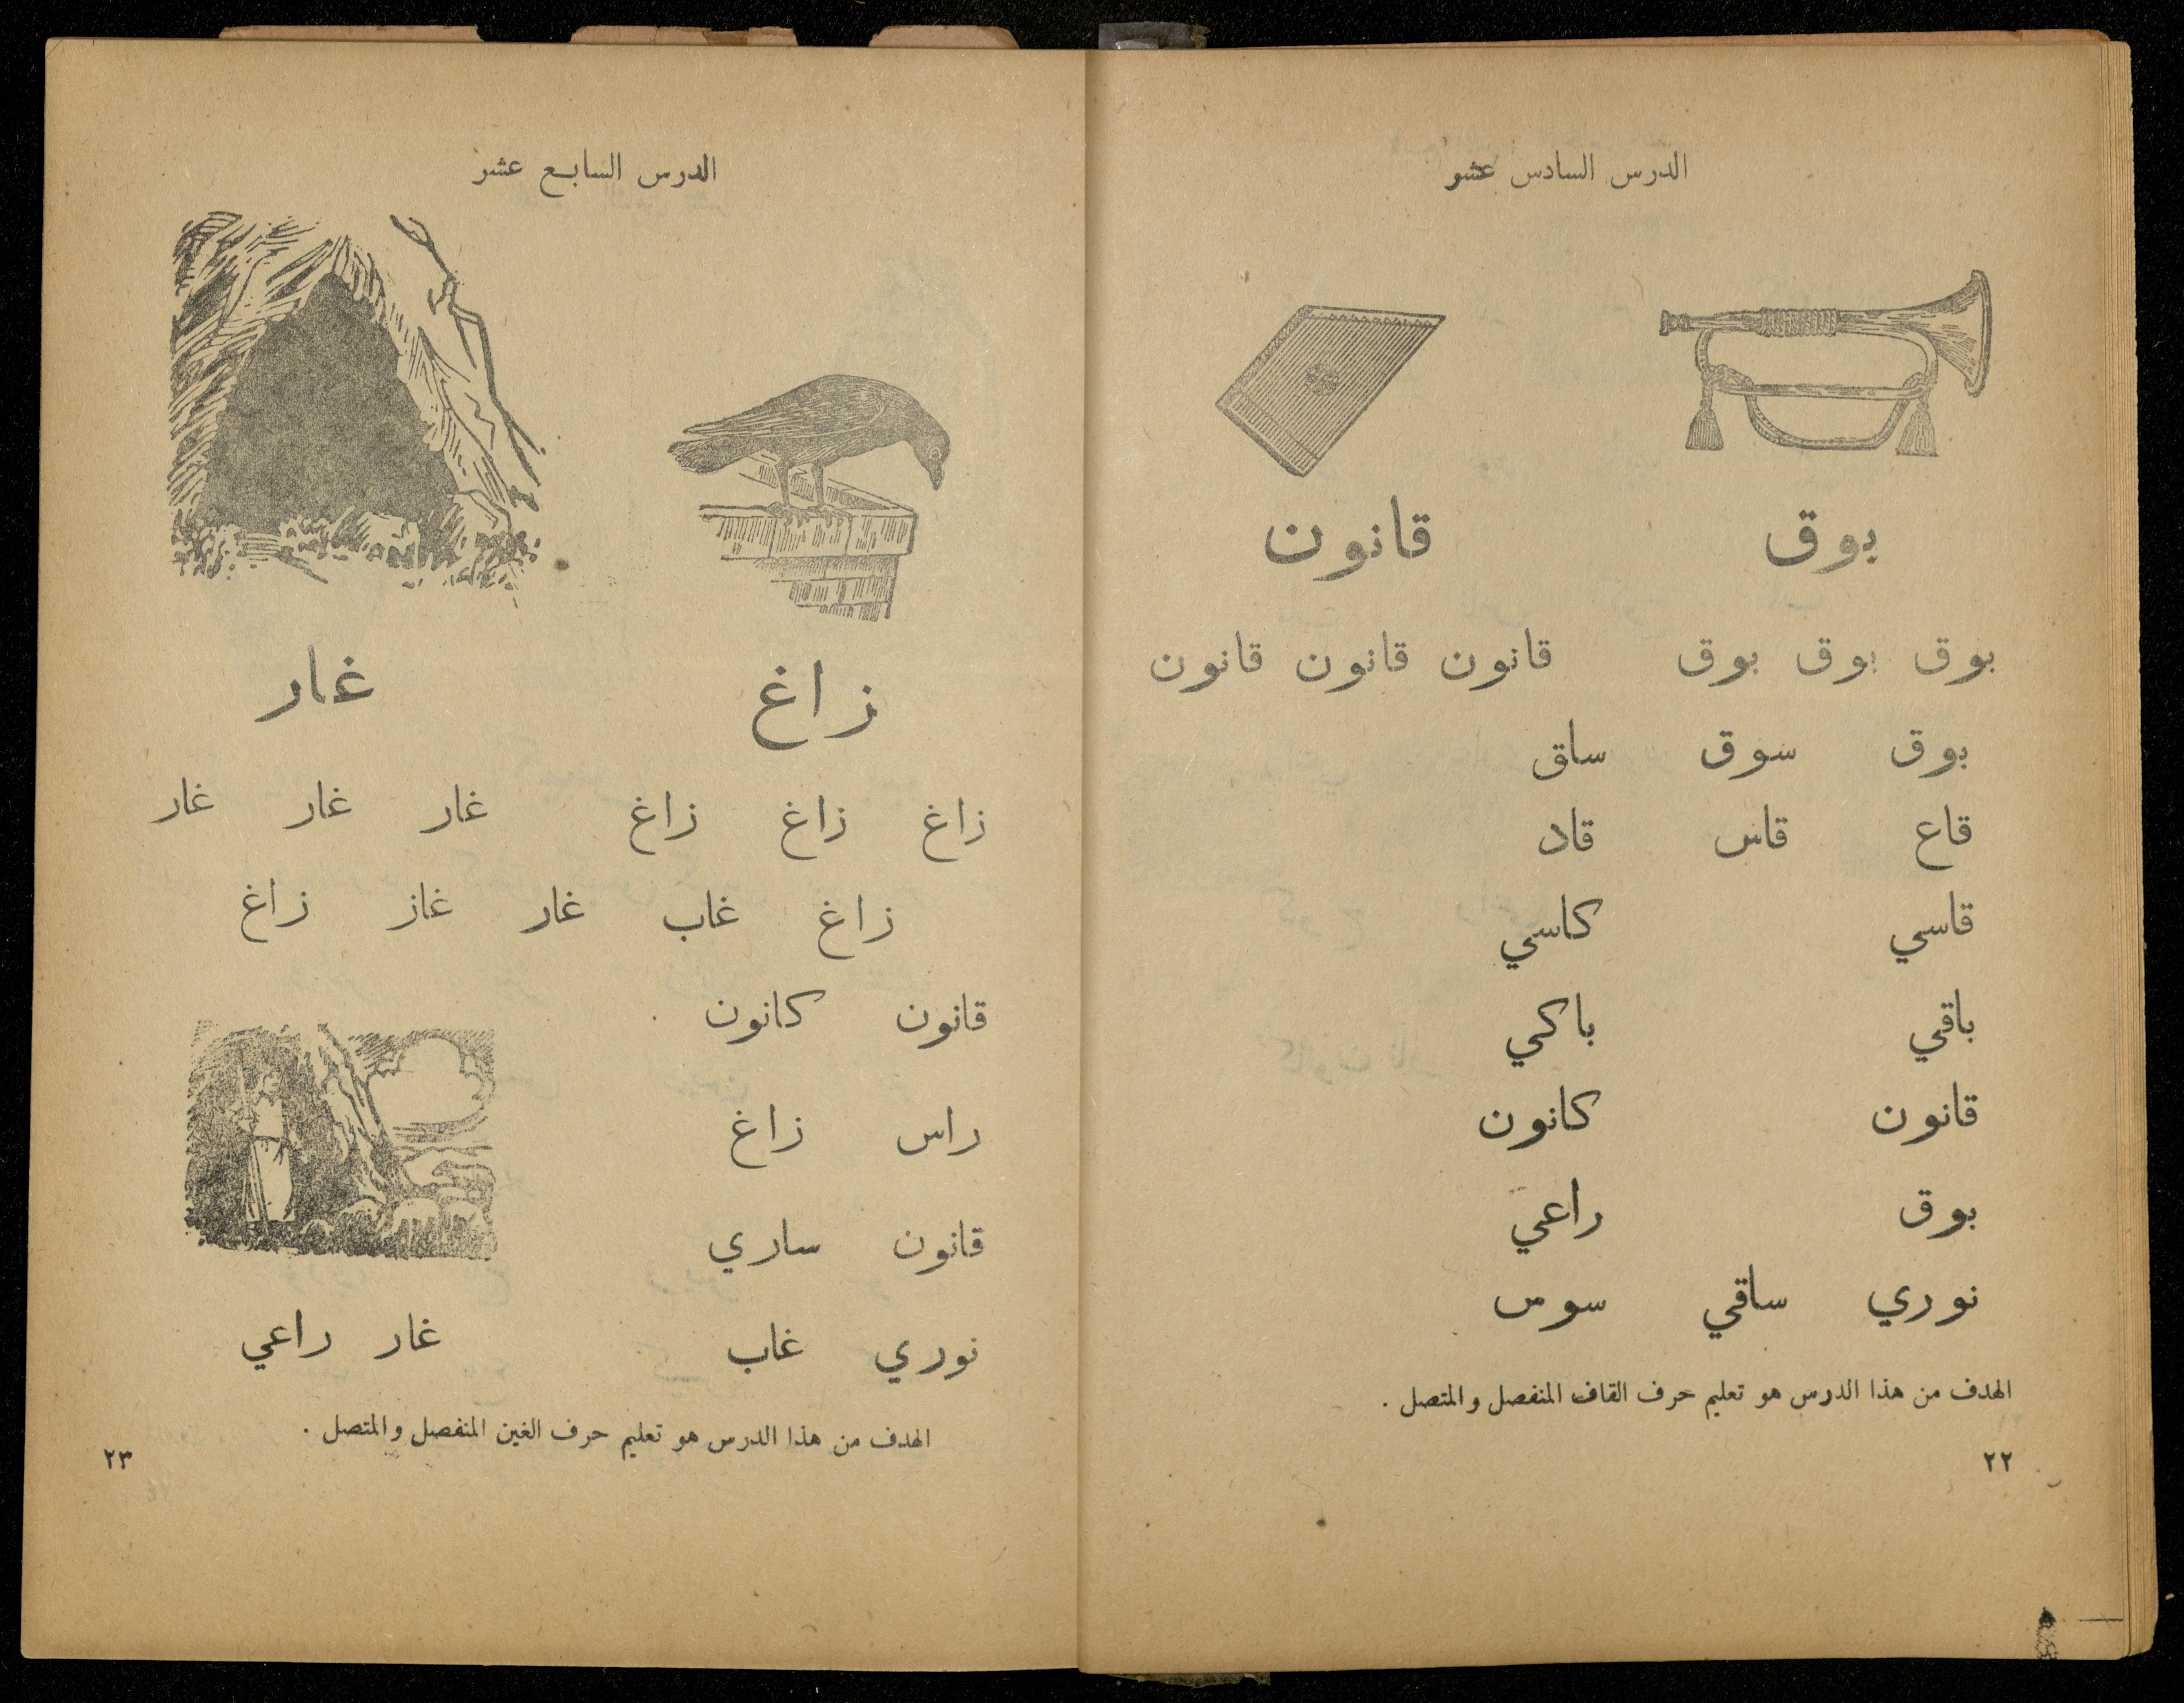 الدرس السادس عشر
بوق قانون
بوق بوق بوق قانون قانون قانون
بوق سوق ساق
قاع قاس قاد
قاسي كاسي
باقي باكي
قانون كانون
بوق راعي
نوري ساقي سوس
الهدف من هذا الدرس هو تعليم حرف القاف المنفصل والمتصل .
٢٢
الدرس السابع عشر
زاغ غار
زاغ زاغ زاغ غار غار غار
زاغ غاب غار غاز زاغ
قانون كانون
راس زاغ
قانون ساري
نوري غاب غار راعي
الهدف من هذا الدرس هو تعليم حرف الغين المنفصل والمتصل .
٢٣